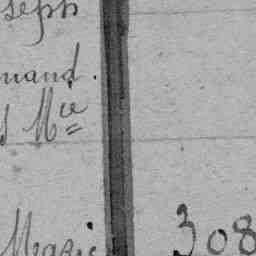 seph
nand.
d Mie
Marie 308